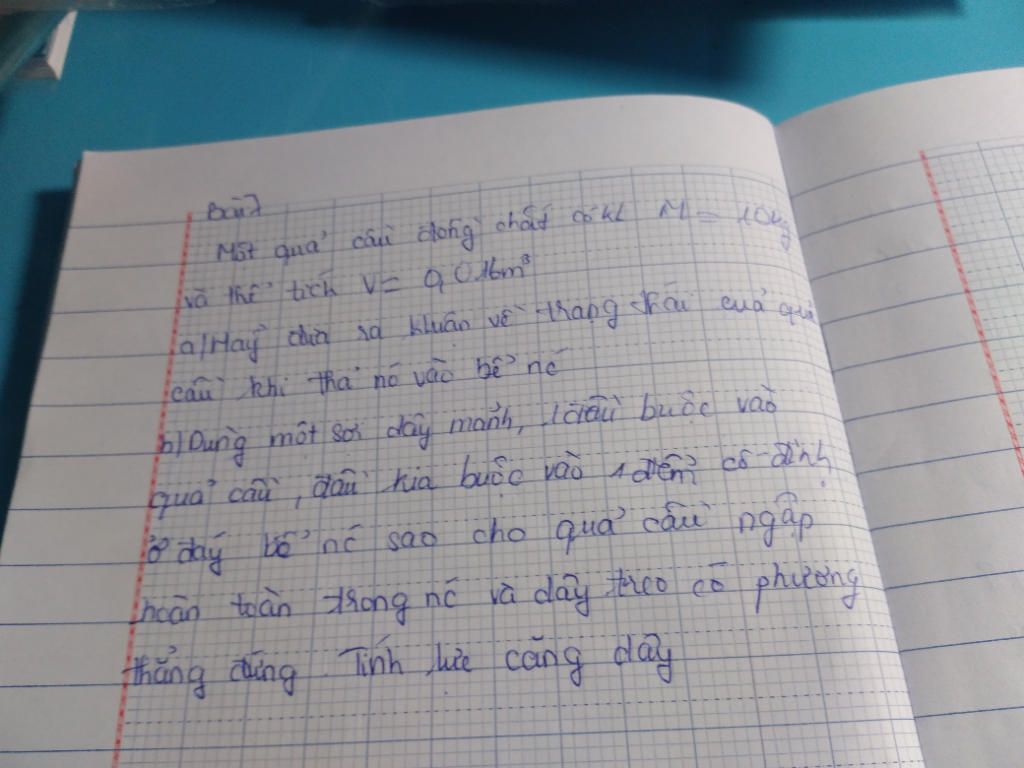 Bài 7
Một quả cầu đồng chất có kl M = 10kg
và thể tích V = 0,016m³
a) Hãy đưa ra khuẩn về trạng thái của quả
cầu khi thả nó vào bể nc
b) Dùng một sợi dây mảnh, 1 đầu buộc vào
quả cầu, đầu kia buộc vào 1 điểm cố định
ở đáy bể nc sao cho quả cầu ngập
hoàn toàn trong nc và dây treo có phương
thẳng đứng. Tính lực căng dây